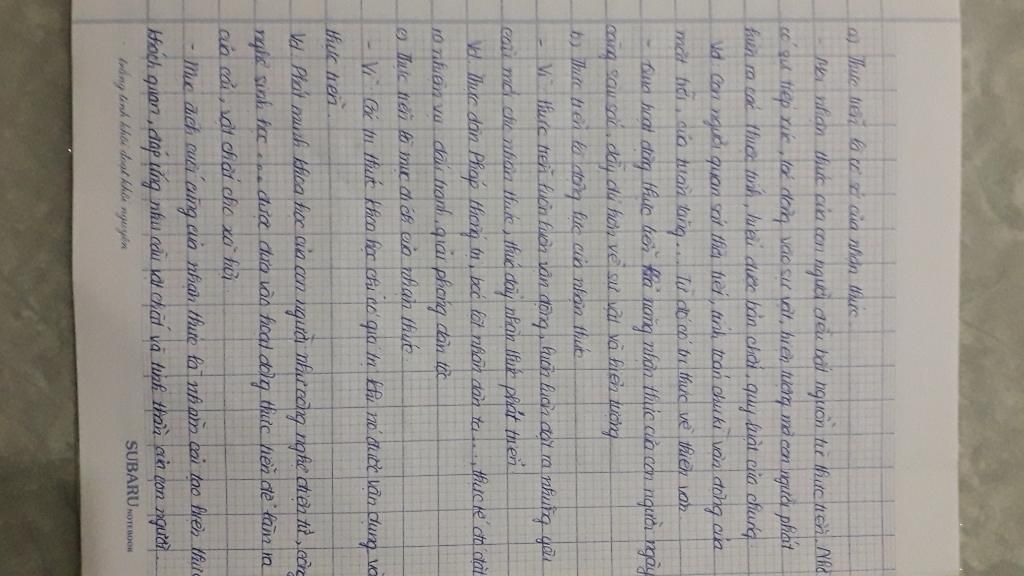 a) Thực tiễn là cơ sở của nhận thức.
- Mọi nhận thức của con người đều bắt nguồn từ thực tiễn. Nhờ
có sự tiếp xúc, tác động vào sự vật, hiện tượng mà con người phát
hiện ra các thuộc tính, hiểu được bản chất, quy luật của chúng.
Vd Con người quan sát thời tiết, tính toán chu kì vận động của
mặt trời, của trăng.... Từ đó có tri thức về thiên văn.
- Qua hoạt động thực tiễn nhận thức của con người ngày
càng sâu sắc, đầy đủ hơn về sự vật và hiện tượng
b) Thực tiễn là động lực của nhận thức.
- Vì thực tiễn luôn luôn vận động, luôn luôn đặt ra những yêu
cầu mới cho nhận thức, thúc đẩy nhận thức phát triển
Vd. Thực dân Pháp thống trị, bóc lột nhân dân ta...., thực tế đó đặt
ra nhiệm vụ đấu tranh, giải phóng dân tộc
c) Thực tiễn là mục đích của nhận thức.
- Vì Các tri thức khoa học chỉ có giá trị khi nó được vận dụng và
thực tiễn.
Vd. Phát minh khoa học của con người như công nghệ điện tử, công
nghệ sinh học.... được đưa vào hoạt động thực tiễn để làm ra
của cải, vật chất cho xã hội.
- Mục đích cuối cùng của nhận thức là nhằm cải tạo hiện thực
khách quan, đáp ứng nhu cầu vật chất và tinh thần của con người.
SUBARU NOTEBOOK